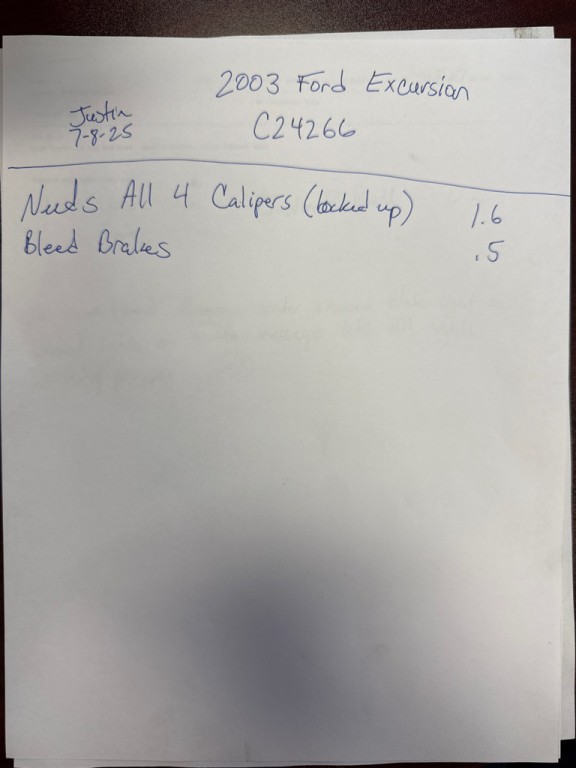 2003 Ford Excursion
Justin
7-8-25
C24266
Needs All 4 Calipers (locked up) 1.6
Bleed Brakes .5